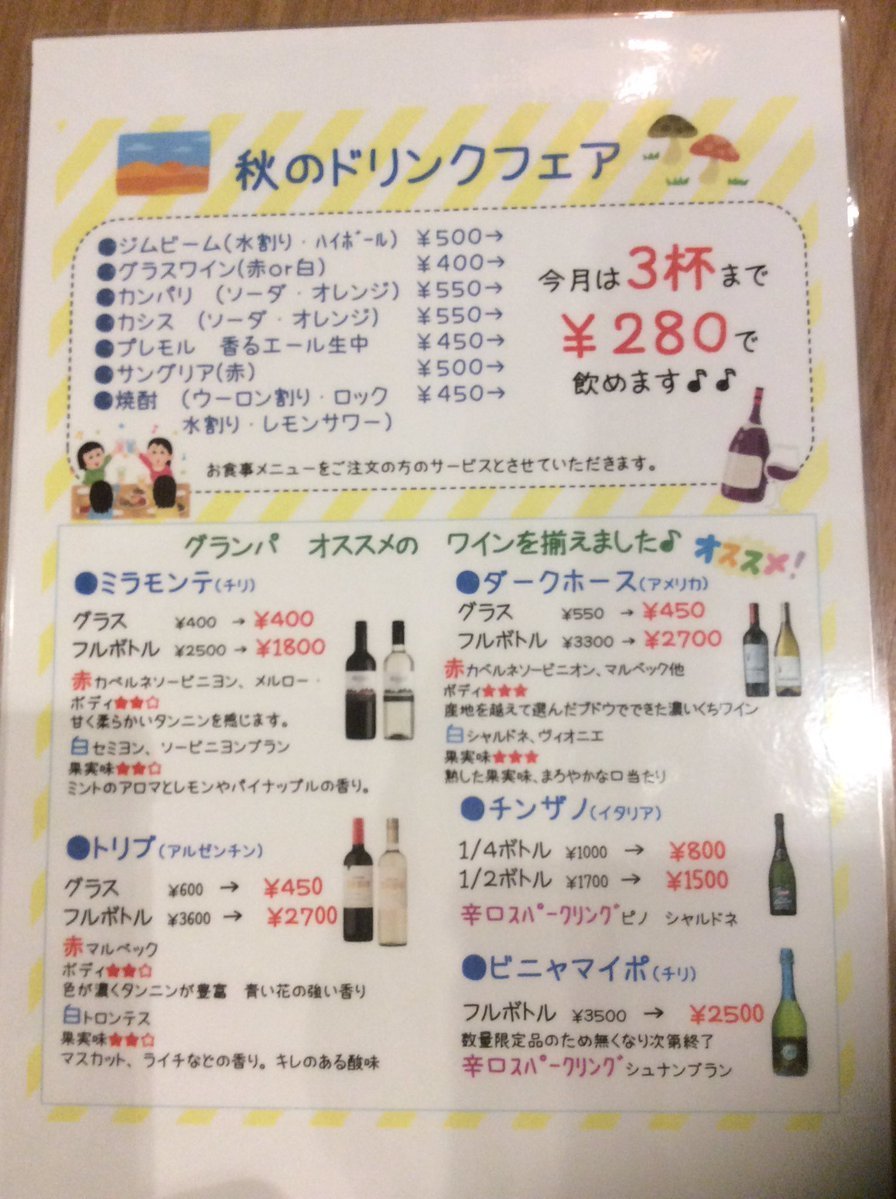 秋のドリンクフェア
●ジムビーム(水割り・ハイボール) ¥500→
●グラスワイン(赤or白) ¥400→
●カンパリ (ソーダ・オレンジ) ¥550→
●カシス (ソーダ・オレンジ) ¥550→
●プレモル 香るエール生中 ¥450→
●サングリア(赤) ¥500→
●焼酎 (ウーロン割り・ロック ¥450→
水割り・レモンサワー)
今月は3杯まで
¥280で
飲めます♪♪
お食事メニューをご注文の方のサービスとさせていただきます。
グランパ オススメの ワインを揃えました♪ オススメ!
●ミラモンテ(チリ)
グラス ¥400 → ¥400
フルボトル ¥2500 → ¥1800
赤カベルネソービニヨン、メルロー・
ボディ★★☆
甘く柔らかいタンニンを感じます。
白セミヨン、ソービニヨンブラン
果実味★★☆
ミントのアロマとレモンやパイナップルの香り。
●トリブ(アルゼンチン)
グラス ¥600 → ¥450
フルボトル ¥3600 → ¥2700
赤マルベック
ボディ★★☆
色が濃くタンニンが豊富 青い花の強い香り
白トロンテス
果実味★★☆
マスカット、ライチなどの香り。キレのある酸味
●ダークホース(アメリカ)
グラス ¥550 → ¥450
フルボトル ¥3300 → ¥2700
赤カベルネソービニオン、マルベック他
ボディ★★★
産地を越えて選んだブドウでできた濃いくちワイン
白シャルドネ、ヴィオニエ
果実味★★★
熟した果実味、まろやかな口当たり
●チンザノ(イタリア)
1/4ボトル ¥1000 → ¥800
1/2ボトル ¥1700 → ¥1500
辛口スパークリングピノ シャルドネ
●ビニャマイポ(チリ)
フルボトル ¥3500 → ¥2500
数量限定品のため無くなり次第終了
辛口スパークリングシュナンブラン